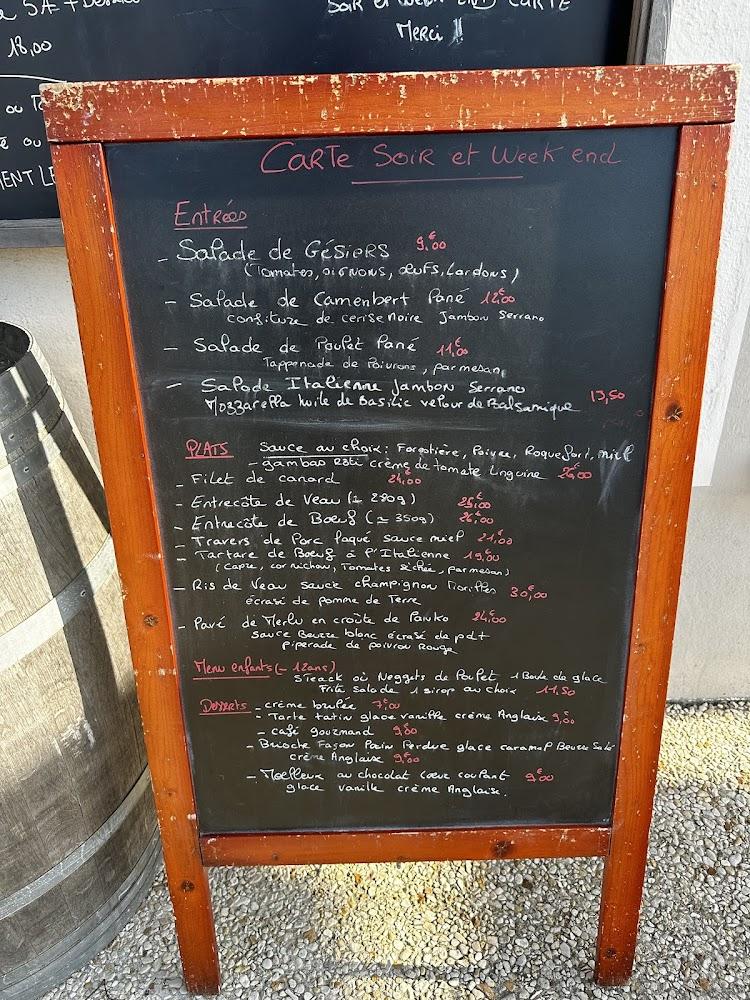 18,00
SOIR et WEEK END CARTE
Merci !!
ou
ou
CARTE SOIR et WEEK end
Entrées
- Salade de Gésiers 9,00€
(Tomates, oignons, œufs, Lardons)
- Salade de Camenbert Pané 12,00€
confiture de cerise noire Jambon Serrano
- Salade de Poulet Pané 11,00€
Tappenade de Poivrons, parmesan
- Salade Italienne Jambon Serrano
Mozzarella huile de Basilic velour de Balsamique 13,50
PLATS Sauce au choix : Forestière, Poivre, Roquefort, miel
- gambas Roti crème de tomate Linguine 26,00€
- Filet de canard 24,00€
- Entrecôte de Veau (≃ 280g) 25,00€
- Entrecôte de Boeuf (≃ 350g) 26,00€
- Travers de Porc laqué sauce miel 21,00€
- Tartare de Boeuf à l'Italienne 19,00€
(capre, cornichon, Tomates séchée, parmesan)
- Ris de Veau sauce champignon Morilles 30,00€
écrasé de pomme de Terre
- Pavé de Merlu en croûte de Panko 24,00€
Sauce Beurre blanc écrasé de pdt
piperade de poivron Rouge
Menu enfants (- 12ans)
STeack où Neggets de Poulet 1 Boule de glace
Frite Salade 1 sirop au choix 11,50
Desserts - crème brulée 7,00€
- Tarte tatin glace vanille crème Anglaise 9,00€
- café gourmand 9,00€
- Brioche Fason Pain Perdue glace caramel Beurre Salé
crème Anglaise 9,00€
- Moelleux au chocolat cœur coulant 9,00€
glace vanille crème Anglaise.